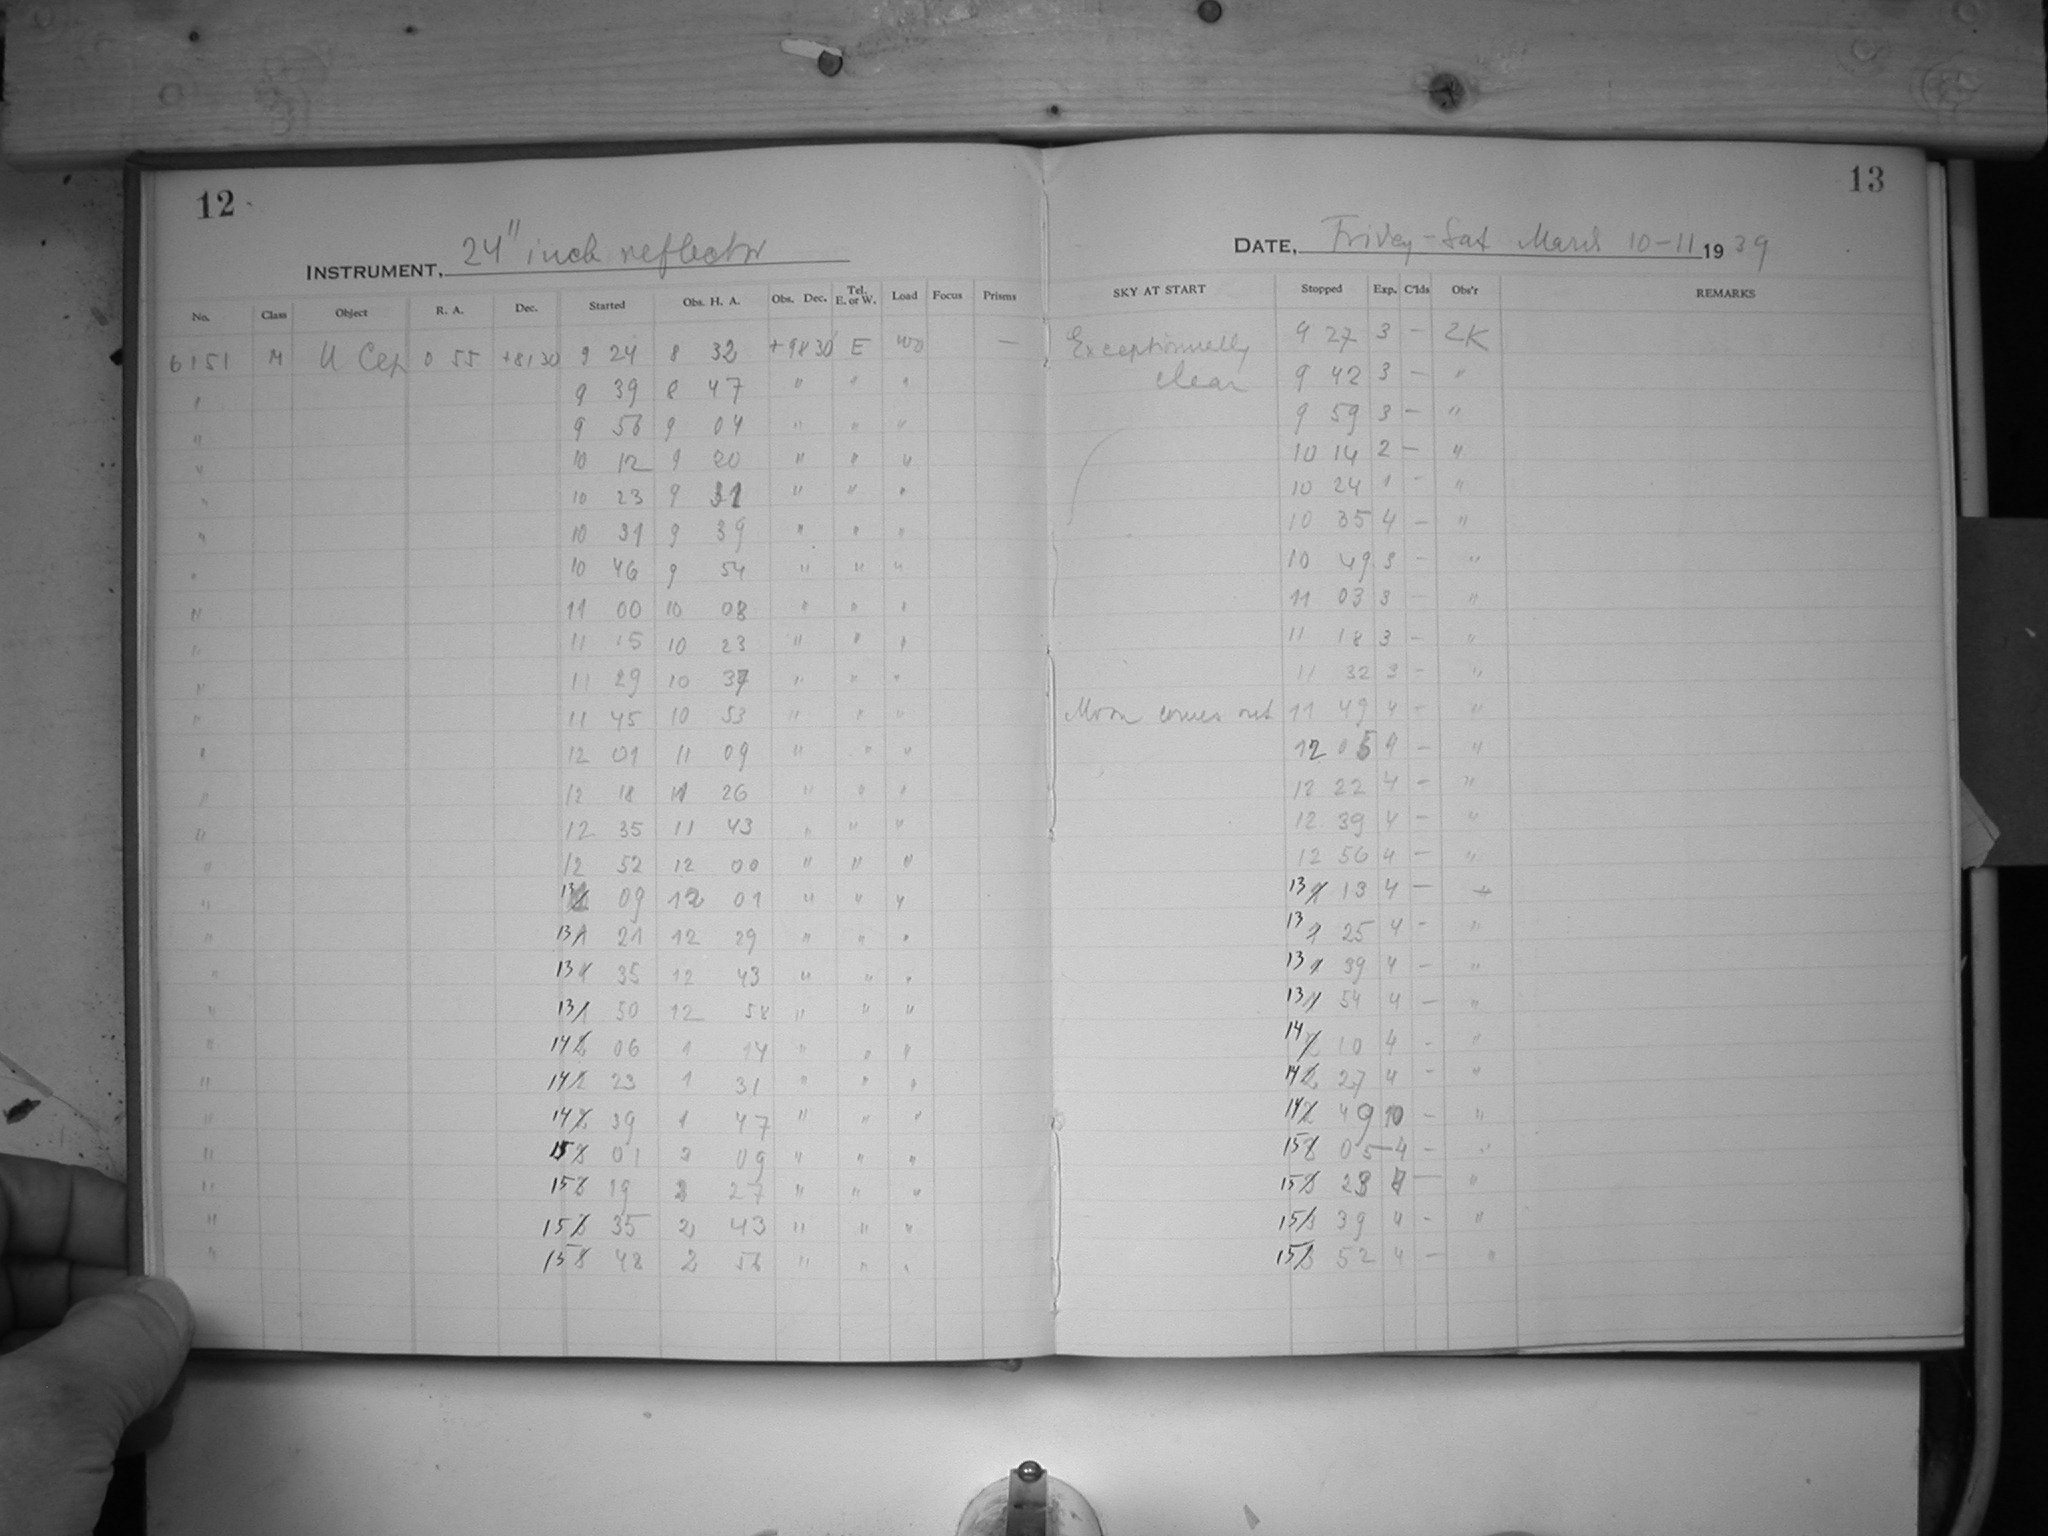 12
INSTRUMENT, 24" inch reflector
No. Class Object R. A. Dec. Started Obs. H. A. Obs. Dec. Tel. E. or W. Load Focus Prisms
6151 M U Cep 0 55 +8130 9 24 8 32 +9830 E —
" 9 39 8 47 " " "
" 9 56 9 04 " " "
" 10 12 9 20 " " "
" 10 23 9 31 " " "
" 10 31 9 39 " " "
" 10 46 9 54 " " "
" 11 00 10 08 " " "
" 11 15 10 23 " " "
" 11 29 10 37 " " "
" 11 45 10 53 " " "
" 12 01 11 09 " " "
" 12 18 11 26 " " "
" 12 35 11 43 " " "
" 12 52 12 00 " " "
" 13 09 12 01 " " "
" 13 1 21 12 29 " " "
" 13 1 35 12 43 " " "
" 13 1 50 12 58 " " "
" 14 2 06 1 14 " " "
" 14 2 23 1 31 " " "
" 14 2 39 1 47 " " "
" 15 3 01 2 09 " " "
" 15 3 19 2 27 " " "
" 15 3 35 2 43 " " "
" 15 3 48 2 56 " " "
13
DATE, Friday-Sat March 10-11 1939
SKY AT START Stopped Exp. C'lds Obs'r REMARKS
Exceptionnelly 9 27 3 — ZK
clear 9 42 3 — "
9 59 3 — "
10 14 2 — "
10 24 1 - "
10 35 4 — "
10 49 3 - "
11 03 3 - "
11 18 3 - "
11 32 3 - "
Moon comes out 11 49 4 - "
12 05 4 - "
12 22 4 - "
12 39 4 - "
12 56 4 - "
13 1 13 4 — "
13 1 25 4 - "
13 1 39 4 - "
13 1 54 4 — "
14 2 10 4 - "
14 2 27 4 - "
14 2 49 10 - "
15 3 05 4 - "
15 3 23 4 — "
15 3 39 4 - "
15 3 52 4 — "